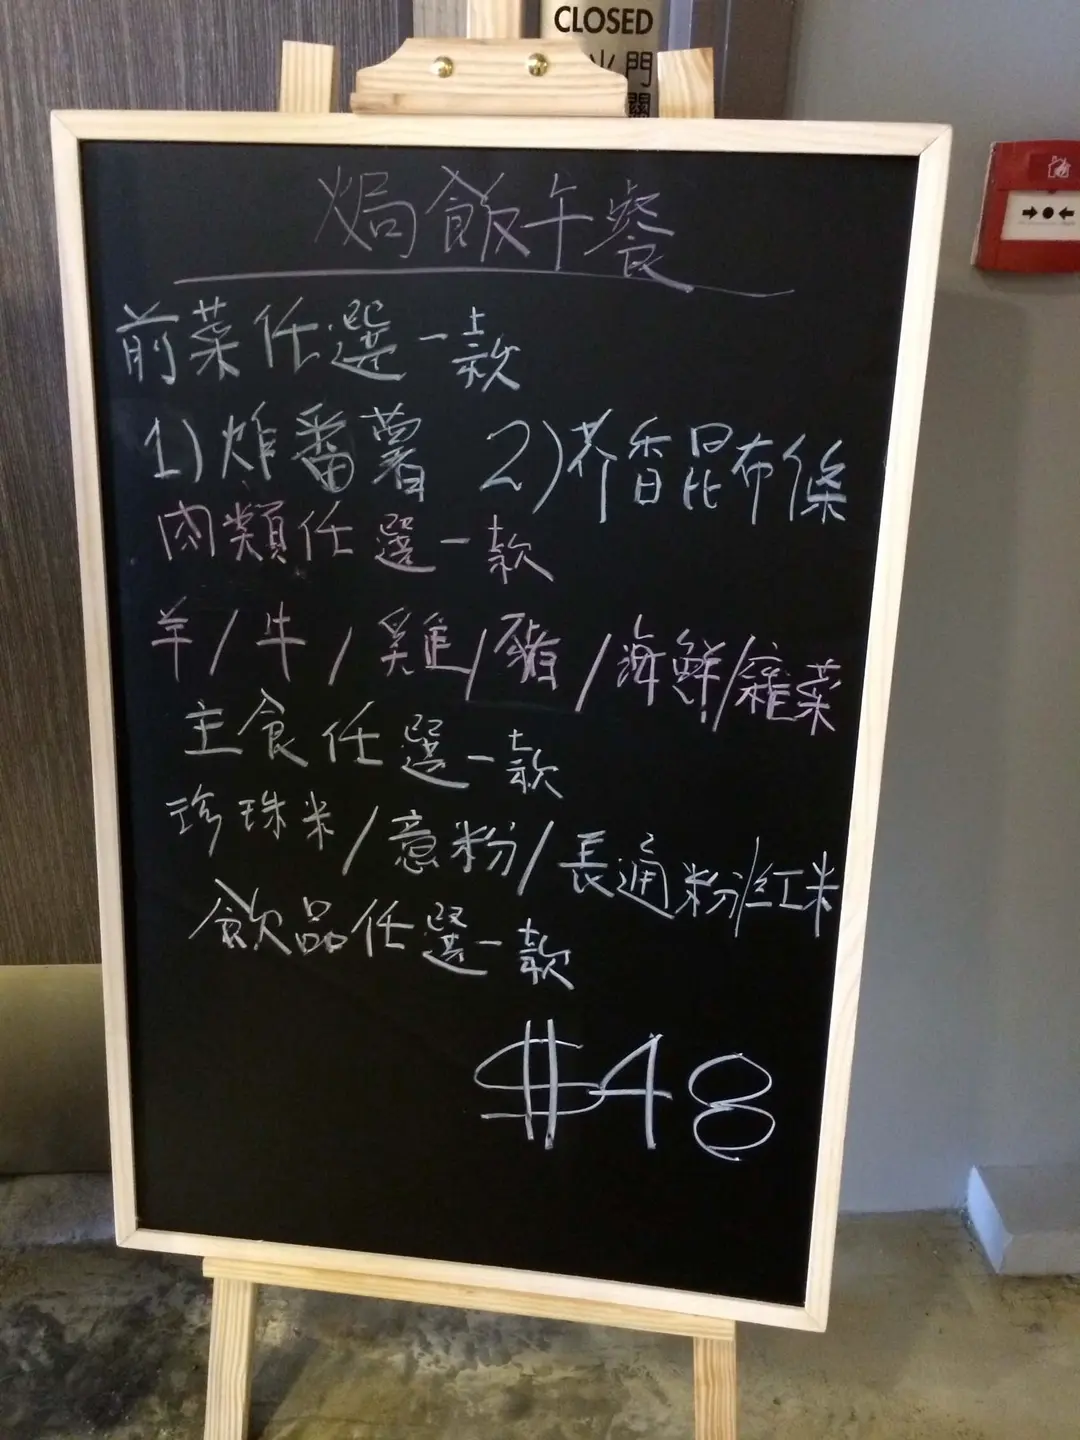 CLOSED
門
關
焗飯午餐
前菜任選一款
1)炸番薯 2)芥香昆布條
肉類任選一款
羊/牛/雞/豬/海鮮/雜菜
主食任選一款
珍珠米/意粉/長通粉/紅米
飲品任選一款
$48